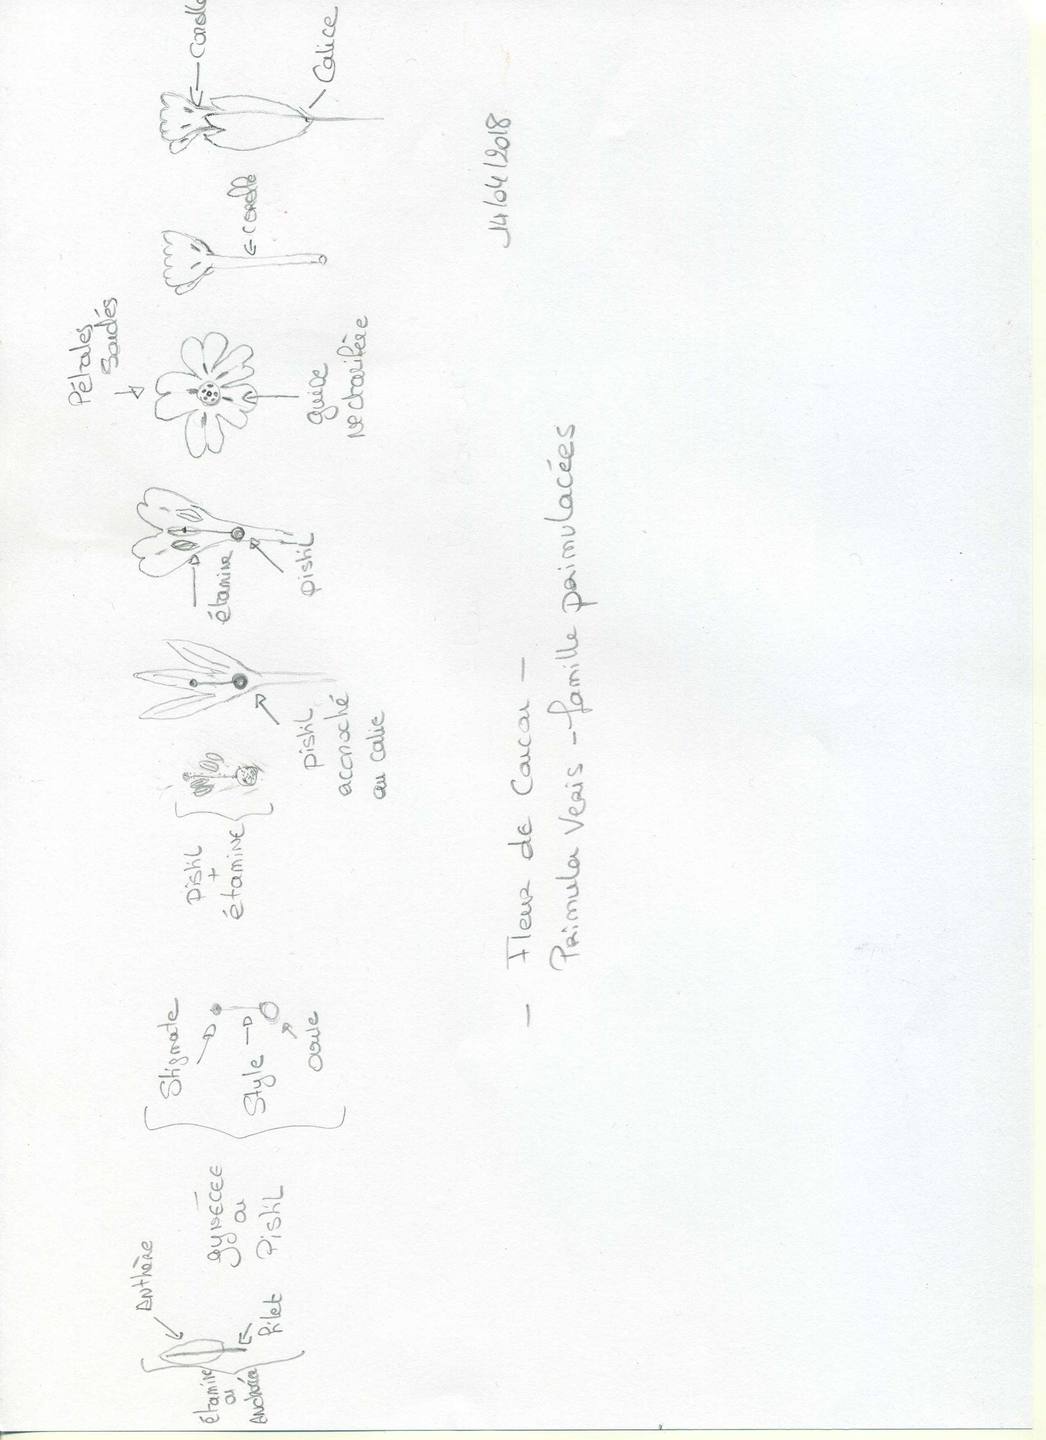 Étamine
ou
Androcée
Anthère
Filet
GYNÉCÉE
ou
Pistil
Stigmate
Style
ovule
Pistil
+
étamine
pistil
accroché
au calice
étamine
pistil
Pétales
soudés
guide
Nectarifère
corolle
Corolle
Calice
14/04/2018
— Fleur de Coucou —
Primula Veris - famille primulacées